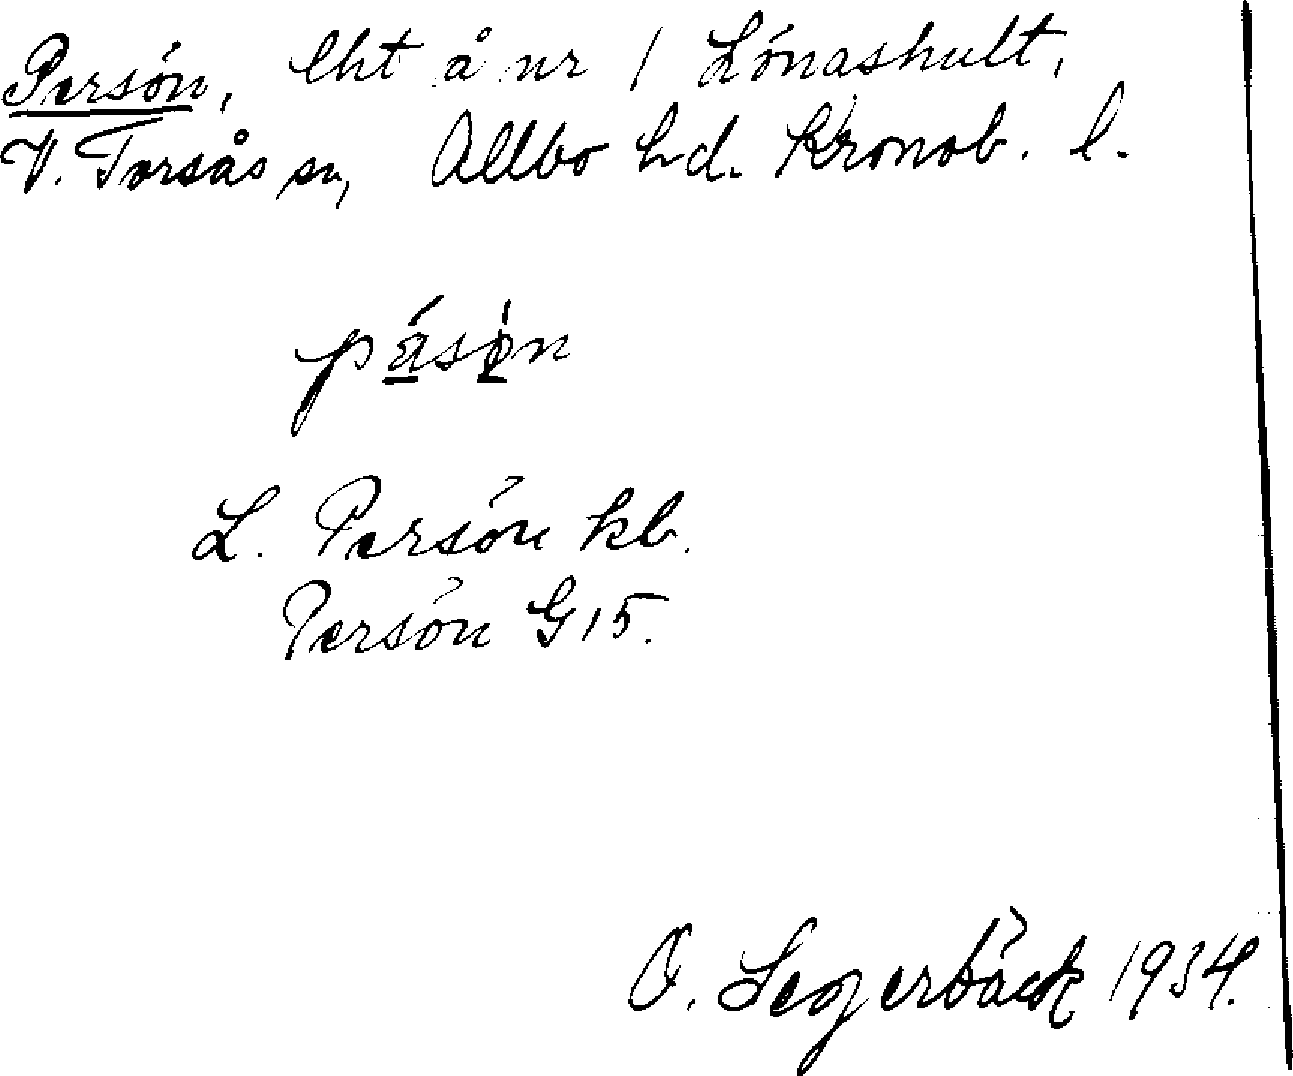 Persön, lht å nr 1 Lönashult,
V. Torsås sn, Allbo hd. Kronob. l.
pásön
L. Persön kb.
Persön G15.
O. Segerbäck 1934.